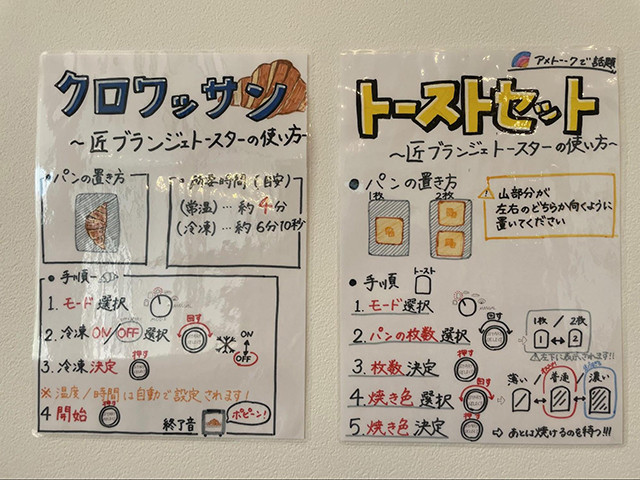 クロワッサン
～匠ブランジェトースターの使い方～
パンの置き方
所要時間(目安)
(常温)…約4分
(冷凍)…約6分10秒
手順
1. モード選択
2. 冷凍ON/OFF選択 回す ON OFF
3. 冷凍決定 押す
※温度/時間は自動で設定されます!
4 開始 押す
終了音 ポピーン!
アメトーークで話題
トーストセット
～匠ブランジェトースターの使い方～
パンの置き方
1枚 2枚
山部分が
左右のどちらか向くように
置いてください
手順 トースト
1. モード選択
2. パンの枚数選択 回す 1枚/2枚 1 2
左下に表示されます!!
3. 枚数決定 押す
4. 焼き色選択 回す 薄い 普通 濃い
5. 焼き色決定 押す
あとは焼けるのを待つ!!!